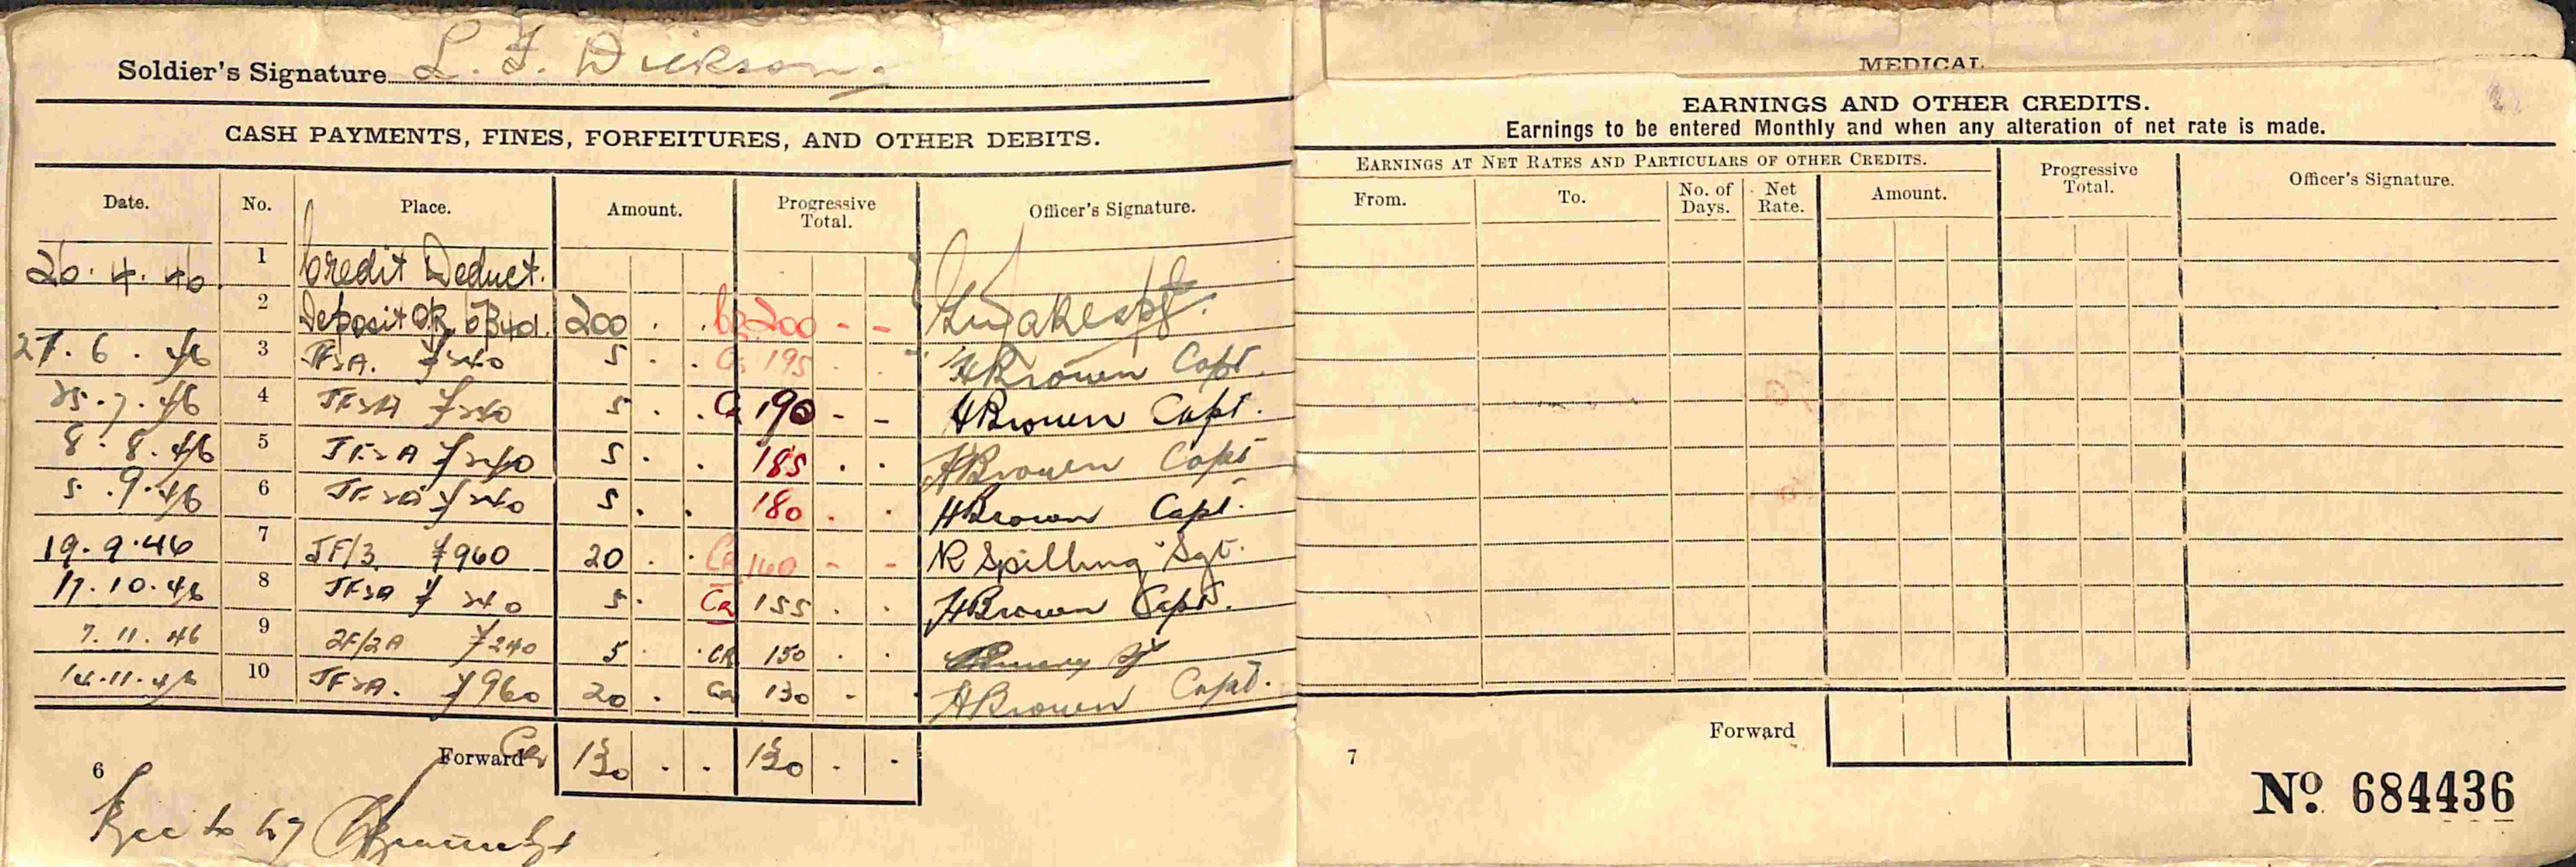 Soldier's Signature L. F. Dickson.
CASH PAYMENTS, FINES, FORFEITURES, AND OTHER DEBITS.
Date. No. Place. Amount. Progressive Total. Officer's Signature.
20.4.46. 1 Credit Deduct.
2 Deposit 200 . . Cr 200 - -
27.6.46 3 ¥240 5 . . Cr 195 . . HBrown Capt.
25.7.46 4 JF2A ¥240 5 . . Cr 190 - - HBrown Capt.
8.8.46 5 JF2A ¥240 5 . . 185 . . HBrown Capt
5.9.46 6 JF2A ¥240 5 . . 180 . . HBrown Capt.
19.9.46 7 JF/3 ¥960 20 . . Cr 160 - - R Spilling Sgt.
17.10.46 8 JF2A ¥240 5 . Cr 155 . . HBrown Capt.
7.11.46 9 2F/2A ¥240 5 . . CR 150 . .
14.11.46 10 JF2A. ¥960 20 . Cr 130 - . HBrown Capt.
Forward Cr 130 . . 130 . .
6
MEDICAL
EARNINGS AND OTHER CREDITS.
Earnings to be entered Monthly and when any alteration of net rate is made.
EARNINGS AT NET RATES AND PARTICULARS OF OTHER CREDITS.
From. To. No. of Days. Net Rate. Amount. Progressive Total. Officer's Signature.
Forward
7
No. 684436